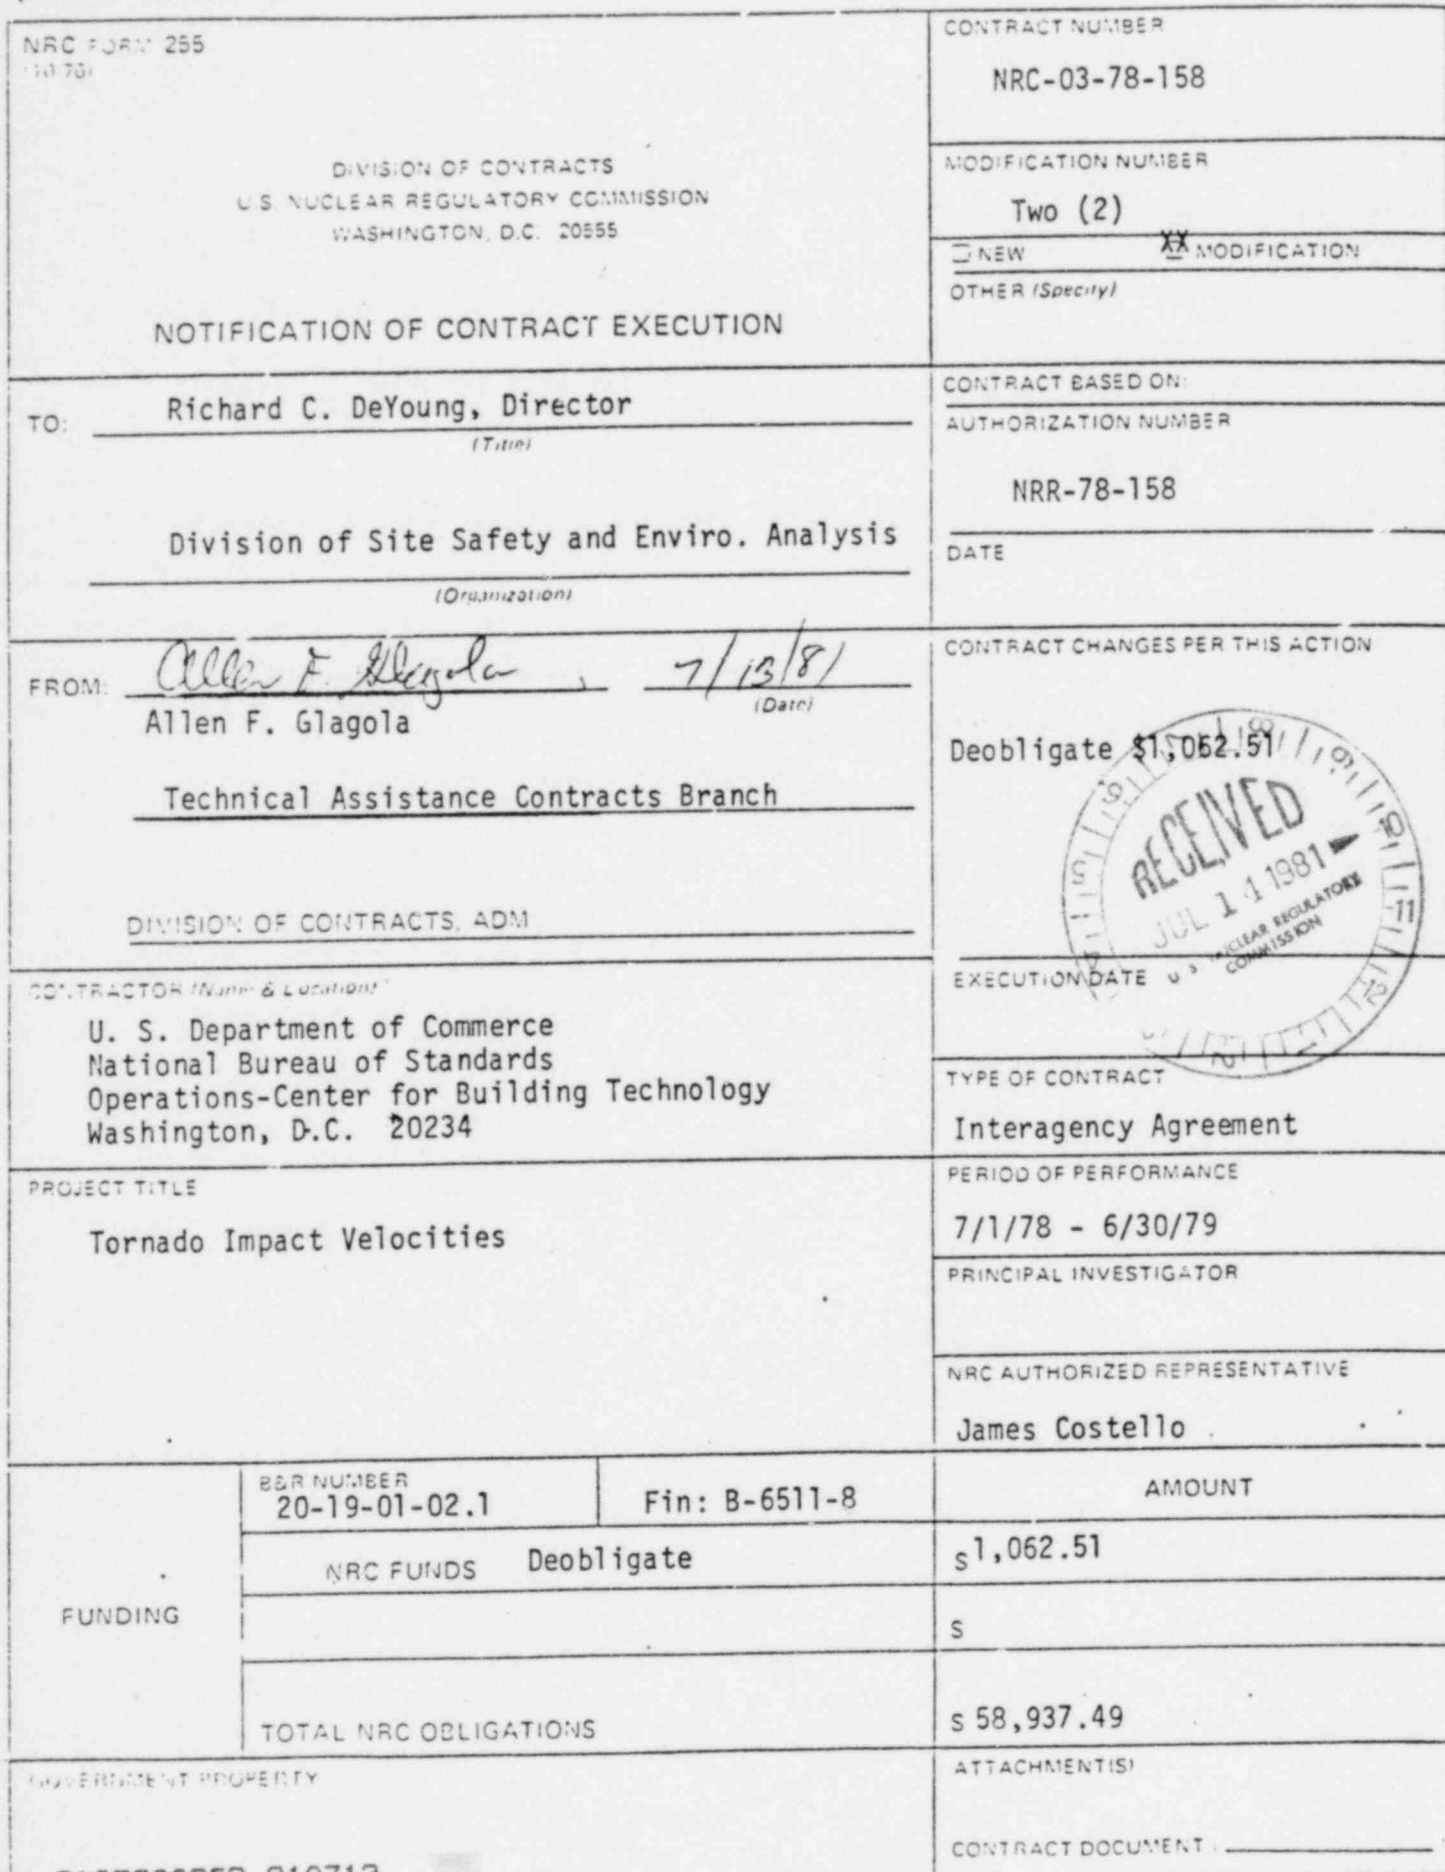 NRC FORM 255
DIVISION OF CONTRACTS
U.S. NUCLEAR REGULATORY COMMISSION
WASHINGTON, D.C. 20555
NOTIFICATION OF CONTRACT EXECUTION
CONTRACT NUMBER
NRC-03-78-158
MODIFICATION NUMBER
Two (2)
NEW XX MODIFICATION
OTHER (Specify)
TO: Richard C. DeYoung, Director
(Title)
Division of Site Safety and Enviro. Analysis
(Organization)
CONTRACT BASED ON:
AUTHORIZATION NUMBER
NRR-78-158
DATE
FROM: Allen F. Glagola 7/13/81
(Date)
Allen F. Glagola
Technical Assistance Contracts Branch
DIVISION OF CONTRACTS, ADM
CONTRACT CHANGES PER THIS ACTION
Deobligate $1,062.51
RECEIVED
JUL 14 1981
U S NUCLEAR REGULATORY
COMMISSION
EXECUTION DATE
CONTRACTOR (Name & Location)
U. S. Department of Commerce
National Bureau of Standards
Operations-Center for Building Technology
Washington, D.C. 20234
TYPE OF CONTRACT
Interagency Agreement
PROJECT TITLE
Tornado Impact Velocities
PERIOD OF PERFORMANCE
7/1/78 - 6/30/79
PRINCIPAL INVESTIGATOR
NRC AUTHORIZED REPRESENTATIVE
James Costello
FUNDING
B&R NUMBER
20-19-01-02.1
Fin: B-6511-8
AMOUNT
NRC FUNDS Deobligate
$1,062.51
$
TOTAL NRC OBLIGATIONS
$ 58,937.49
GOVERNMENT PROPERTY
ATTACHMENT(S)
CONTRACT DOCUMENT